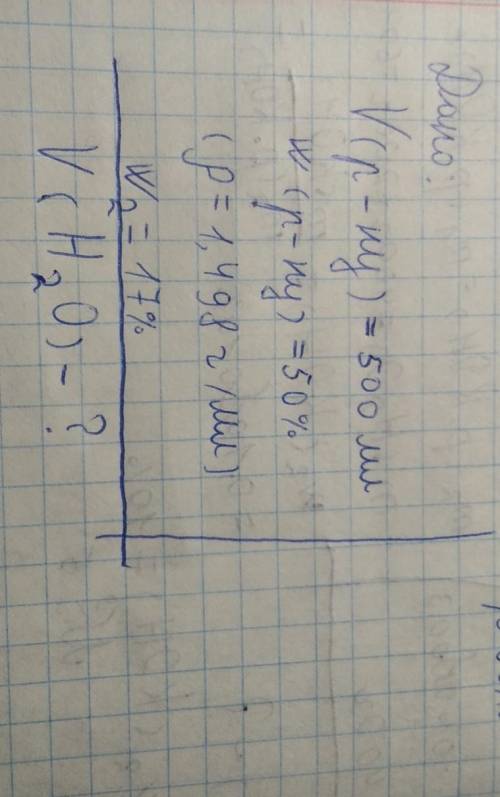 Дано:
V(р-ну) = 500 мл
w(р-ну) = 50%
(ρ = 1,498 г/мл)
w₂ = 17%
V(H₂O) - ?